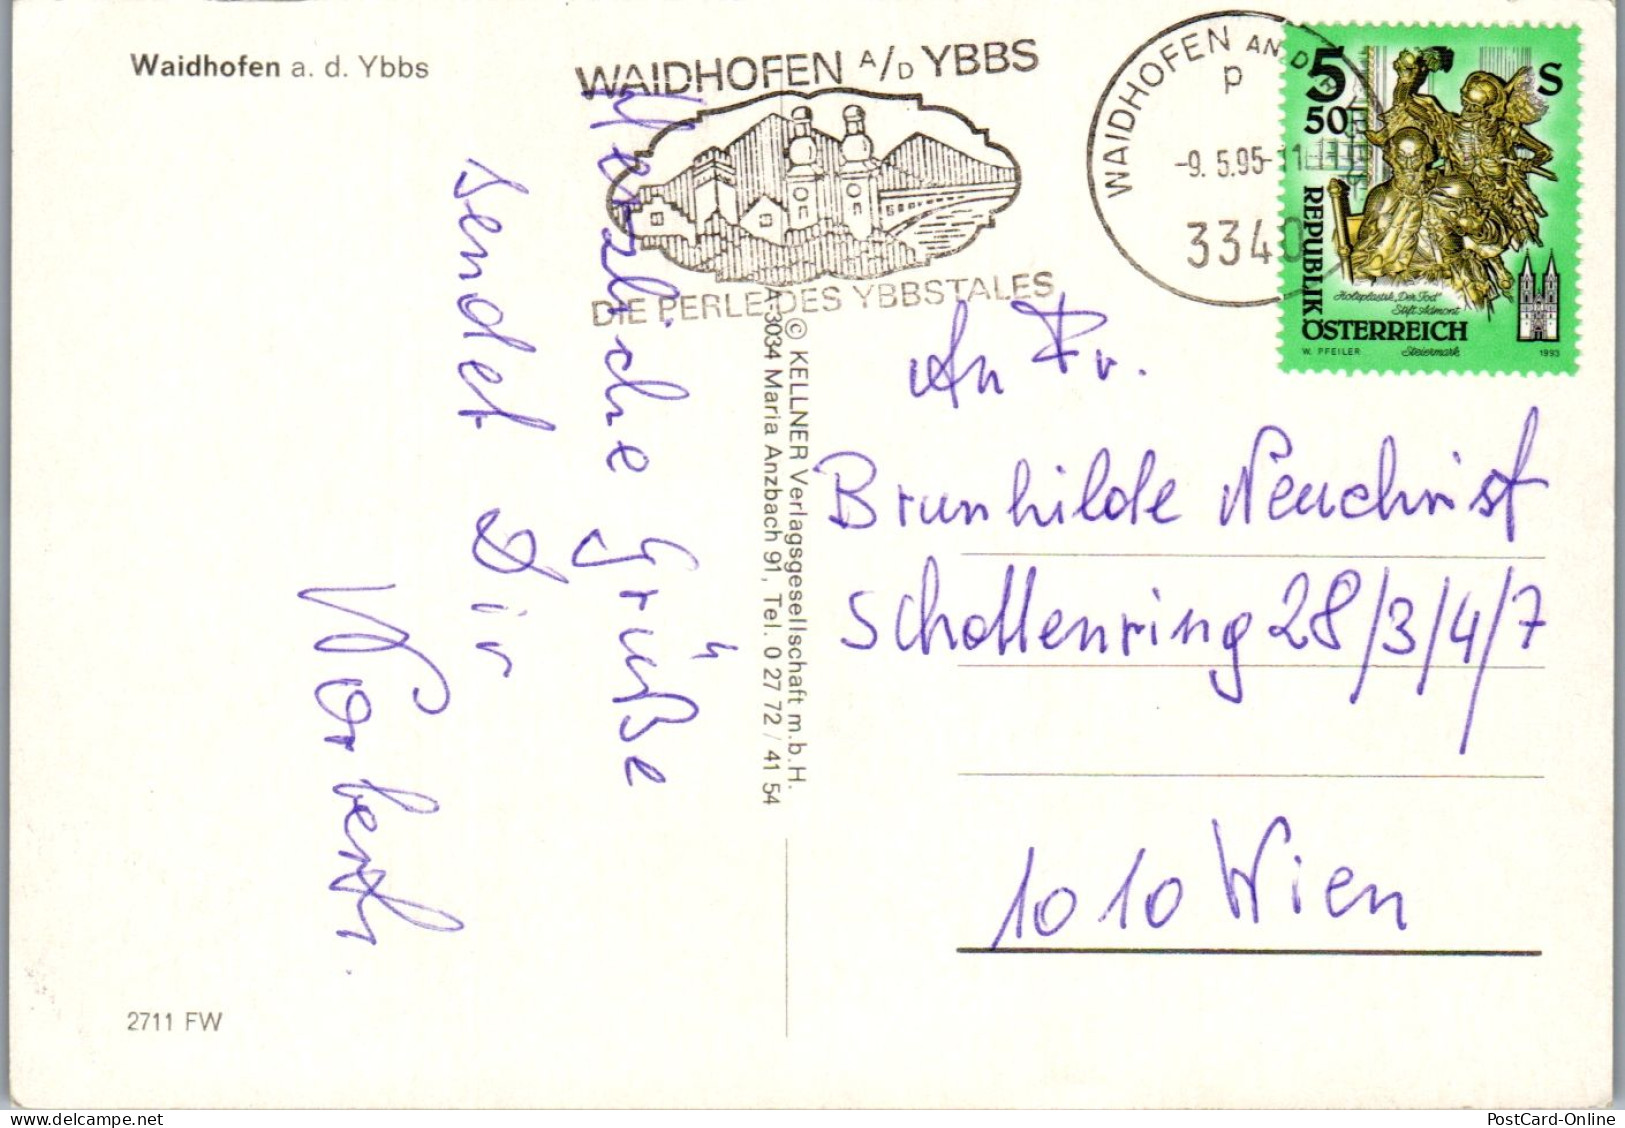 Waidhofen a. d. Ybbs
WAIDHOFEN A/D YBBS
DIE PERLE DES YBBSTALES
WAIDHOFEN AN DER
p
-9. 5.95-11
3340
5 S
50
REPUBLIK
ÖSTERREICH
Holzplastik „Der Tod“
Stift Admont
Steiermark
W. PFEILER
1993
Herzliche Grüße
sendet Dir
Norbert.
© KELLNER Verlagsgesellschaft m.b.H.
A-3034 Maria Anzbach 91, Tel. 0 27 72 / 41 54
An Fr.
Brunhilde Neuchrist
Schottenring 28/3/4/7
1010 Wien
2711 FW
www.delcampe.net
PostCard-Online